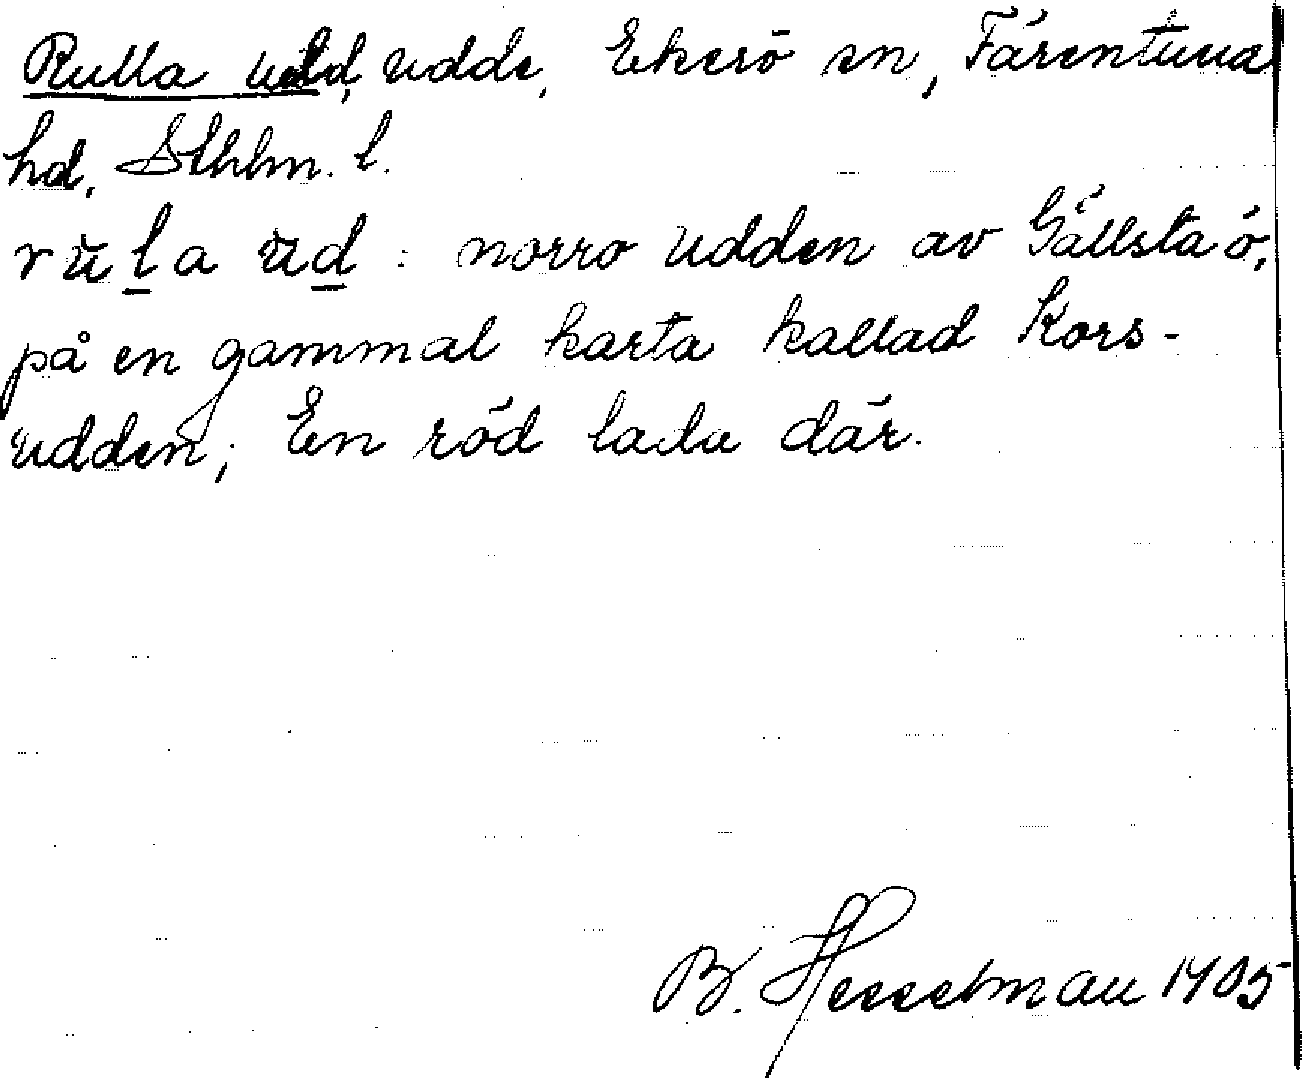 Rulla udd, udde, Ekerö sn, Färentuna
hd, Sthlm. l.
rŭla ŭd : norro udden av Gällsta ö,
på en gammal karta kallad Kors-
udden; En röd lada där.
B. Hesselman 1905